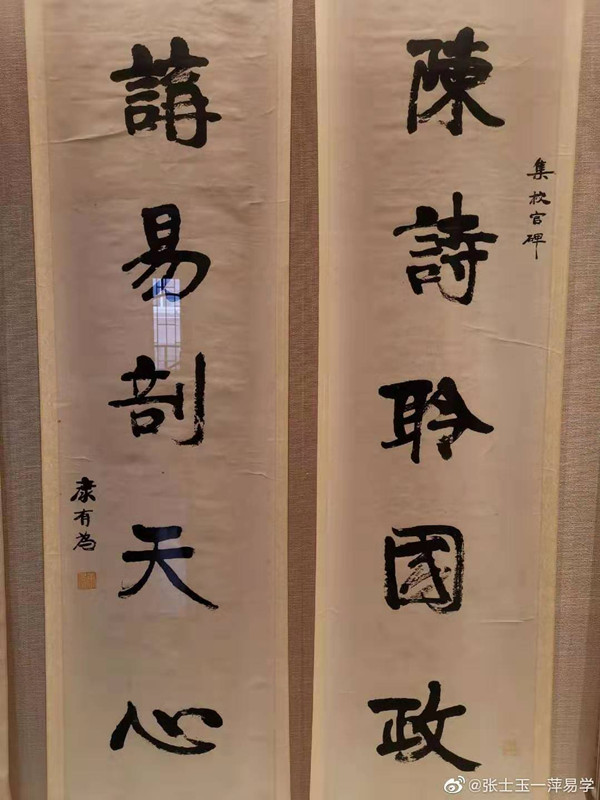 陳詩聆國政
集校官碑
講易剖天心
康有為
@张士玉一萍易学